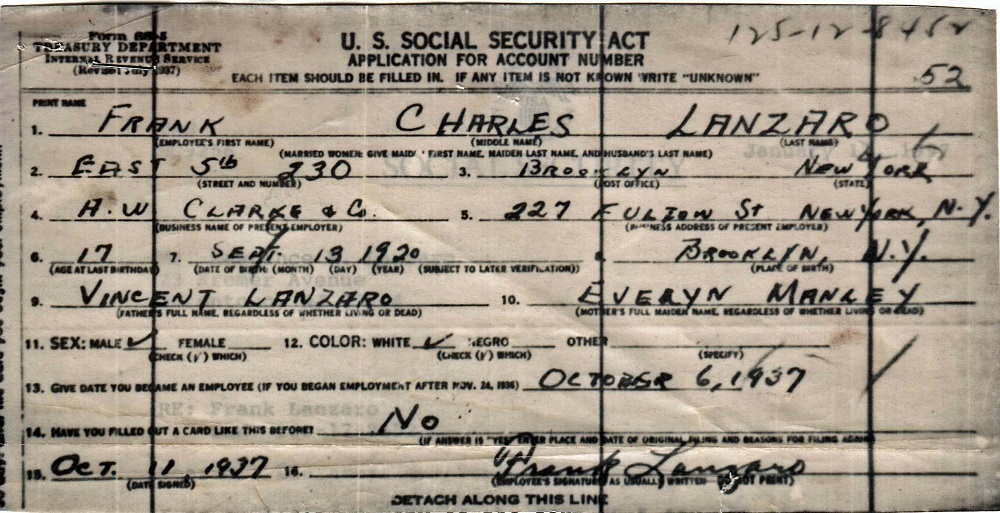 Form SS-5
TREASURY DEPARTMENT
INTERNAL REVENUE SERVICE
(Revised July 1937)
U. S. SOCIAL SECURITY ACT
APPLICATION FOR ACCOUNT NUMBER
125-12-8452
EACH ITEM SHOULD BE FILLED IN. IF ANY ITEM IS NOT KNOWN WRITE "UNKNOWN"
52
PRINT NAME
1. FRANK CHARLES LANZARO
(EMPLOYEE'S FIRST NAME) (MIDDLE NAME) (LAST NAME)
(MARRIED WOMEN: GIVE MAIDEN FIRST NAME, MAIDEN LAST NAME, AND HUSBAND'S LAST NAME)
2. EAST 5th 230 3. BROOKLYN NEW YORK
(STREET AND NUMBER) (POST OFFICE) (STATE)
4. H. W CLARKE & Co. 5. 227 FULTON St NEW YORK, N.Y.
(BUSINESS NAME OF PRESENT EMPLOYER) (BUSINESS ADDRESS OF PRESENT EMPLOYER)
6. 17 7. SEPT. 13 1920 8. BROOKLYN, N.Y.
(AGE AT LAST BIRTHDAY) (DATE OF BIRTH: (MONTH) (DAY) (YEAR) (SUBJECT TO LATER VERIFICATION)) (PLACE OF BIRTH)
9. VINCENT LANZARO 10. EVELYN MANLEY
(FATHER'S FULL NAME, REGARDLESS OF WHETHER LIVING OR DEAD) (MOTHER'S FULL MAIDEN NAME, REGARDLESS OF WHETHER LIVING OR DEAD)
11. SEX: MALE ✓ FEMALE 12. COLOR: WHITE ✓ NEGRO OTHER
(CHECK (√) WHICH) (CHECK (√) WHICH) (SPECIFY)
13. GIVE DATE YOU BECAME AN EMPLOYEE (IF YOU BEGAN EMPLOYMENT AFTER NOV. 24, 1936) OCTOBER 6, 1937
RE: Frank Lanzaro
14. HAVE YOU FILLED OUT A CARD LIKE THIS BEFORE? No
(IF ANSWER IS "YES" ENTER PLACE AND DATE OF ORIGINAL FILING AND REASONS FOR FILING AGAIN)
15. OCT. 11, 1937 16. Frank Lanzaro
(DATE SIGNED) (EMPLOYEE'S SIGNATURE AS USUALLY WRITTEN DO NOT PRINT)
DETACH ALONG THIS LINE